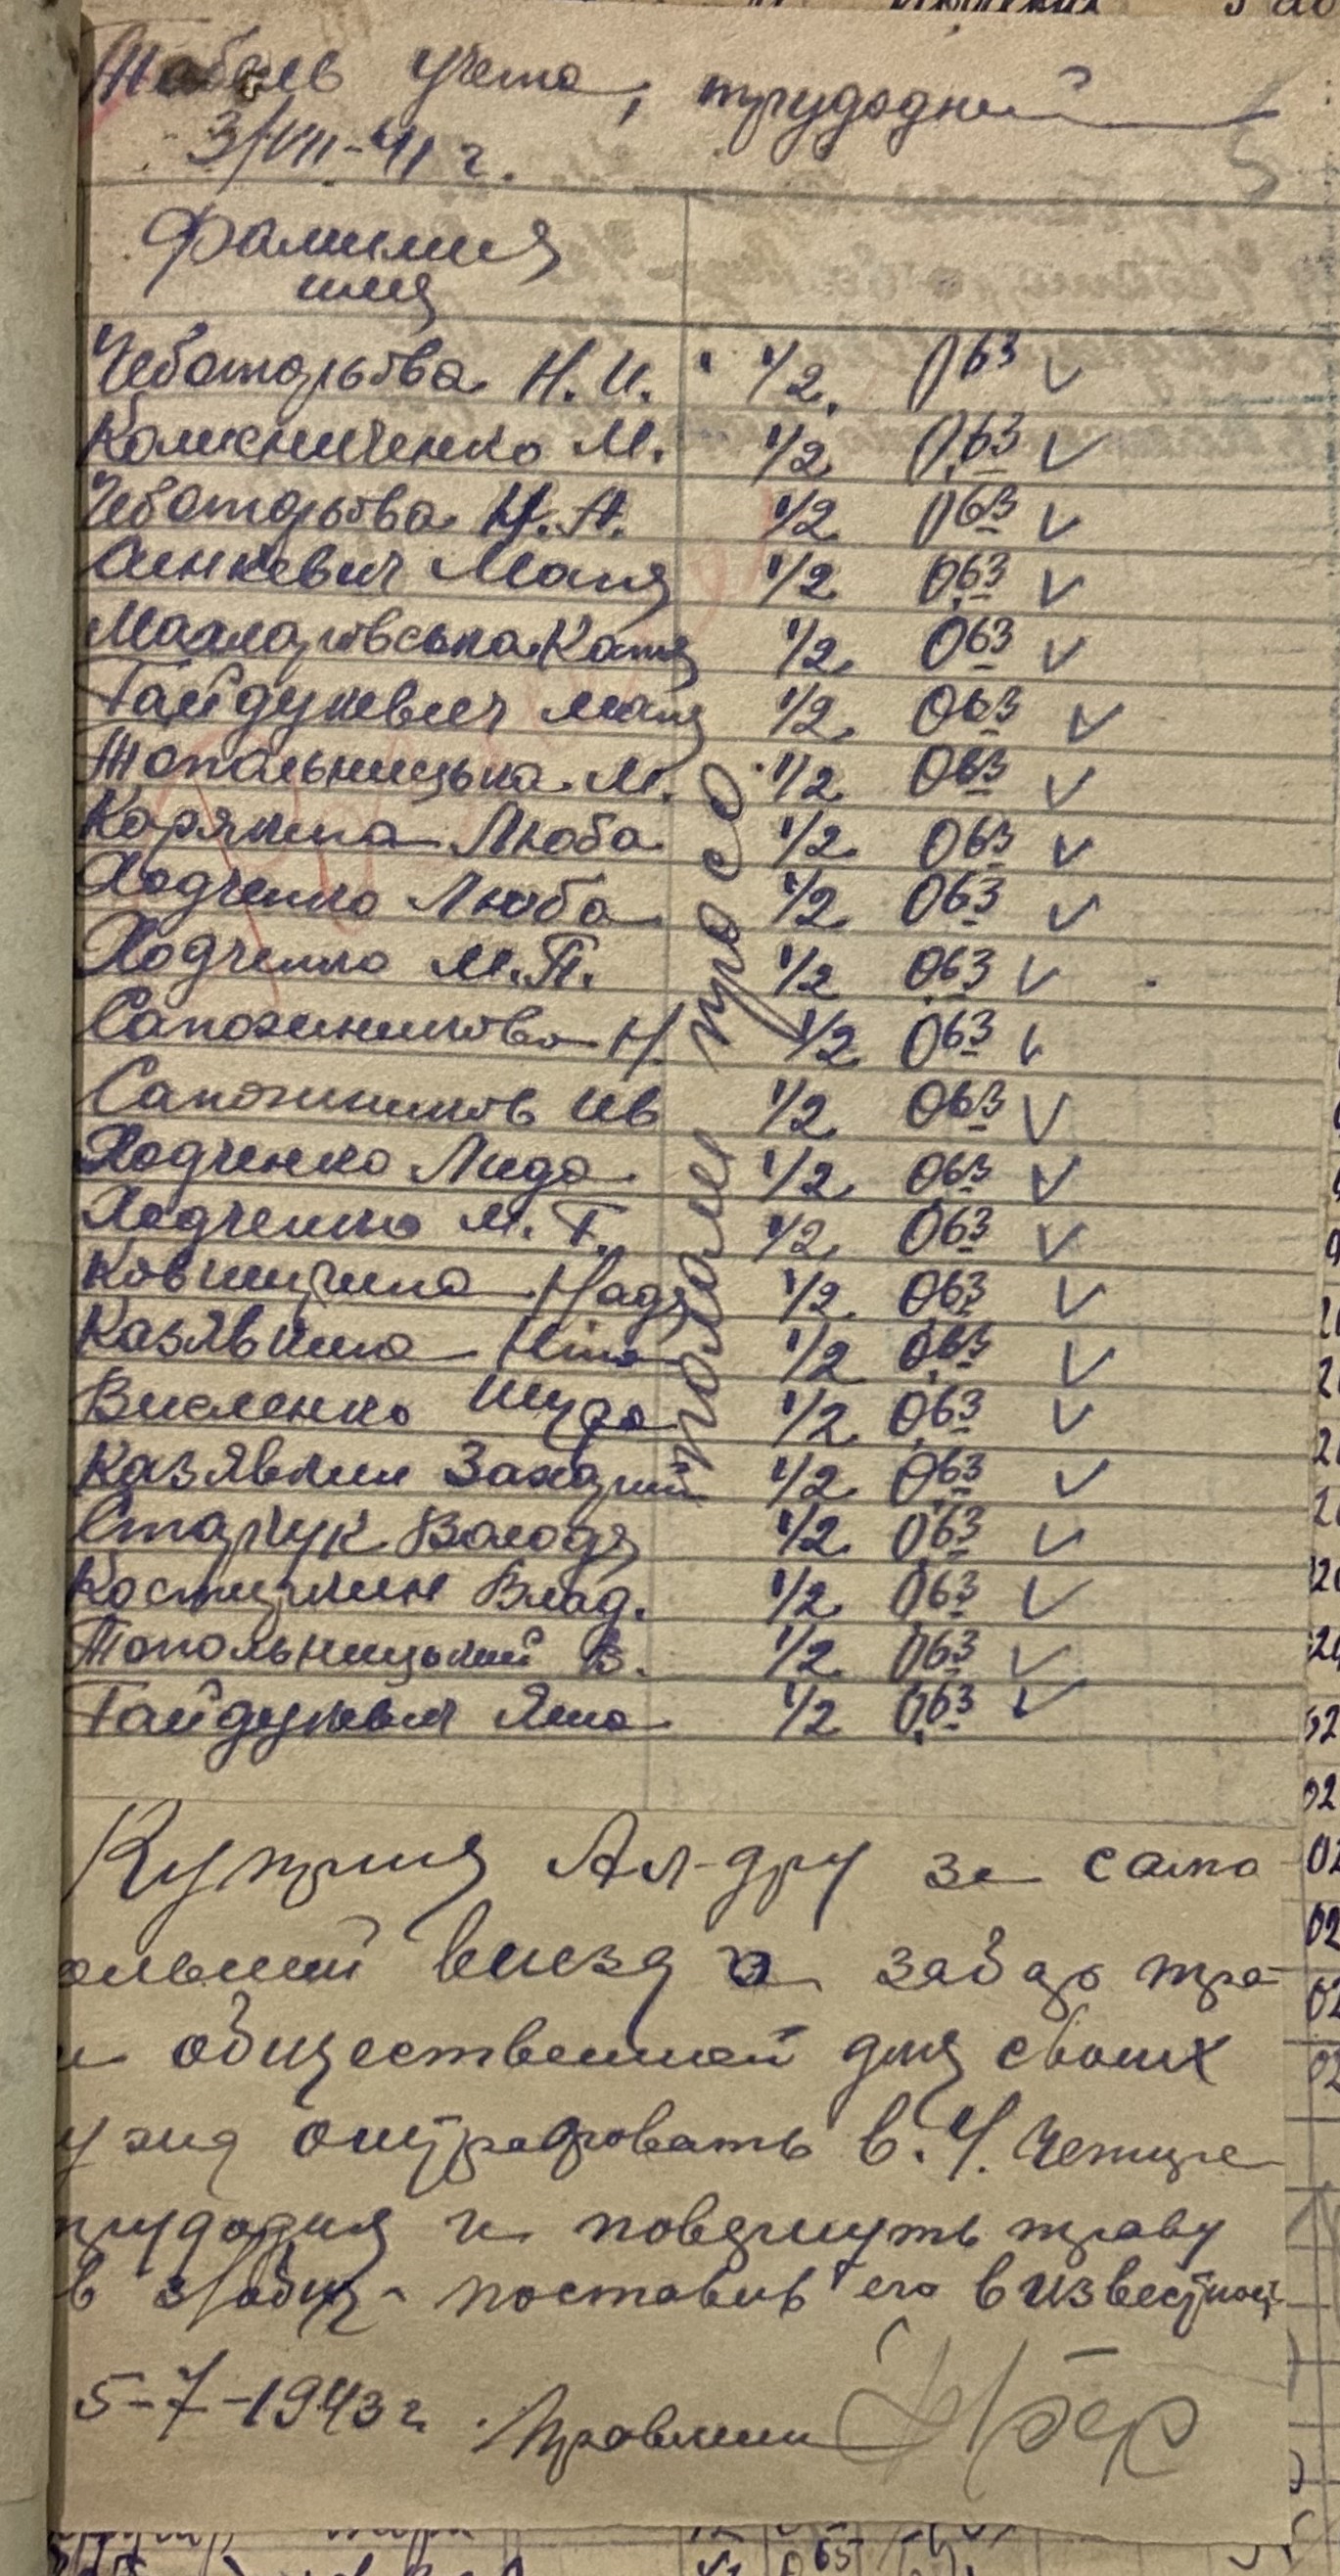 Табель учета, трудодней
3/VII-41 г.
Фамилия
имя
Чеботарьова Н. И. 1/2. 063 V
Колісниченко М. 1/2 0,63 V
Чеботарьова Н. А. 1/2 063 V
Маня 1/2 0,63 V
Катя 1/2 063 V
Гайдукевич Маня 1/2 063 V
Топольницька М. 1/2 063 V
Корякина Люба 1/2 063 V
Ходченко Люба 1/2 063 V
Ходченко М. П. 1/2 0,63 V
Сапожникова Н. 1/2 063 V
Сапожников Ив 1/2 063 V
Ходченко Лида 1/2 063 V
Ходченко М. Г. 1/2 063 V
Надя 1/2 063 V
Казявкина Ніна 1/2 0,63 V
Висленко Шура 1/2 0,63 V
Казявкин Захарий 1/2 0,63 V
Старчук Володя 1/2 063 V
Костишин Влад. 1/2 063 V
Топольницький В. 1/2 063 V
Гайдукевич Яша 1/2 0,63 V
пололи просо
Куприя Ал-дру за само
ольний виезд и забар тра
и общественной для своих
нужд оштрафовать в. 4. четире
трудодня и повернуть траву
в з/общ- поставив его в известност
5-7-1943 г. Правлении